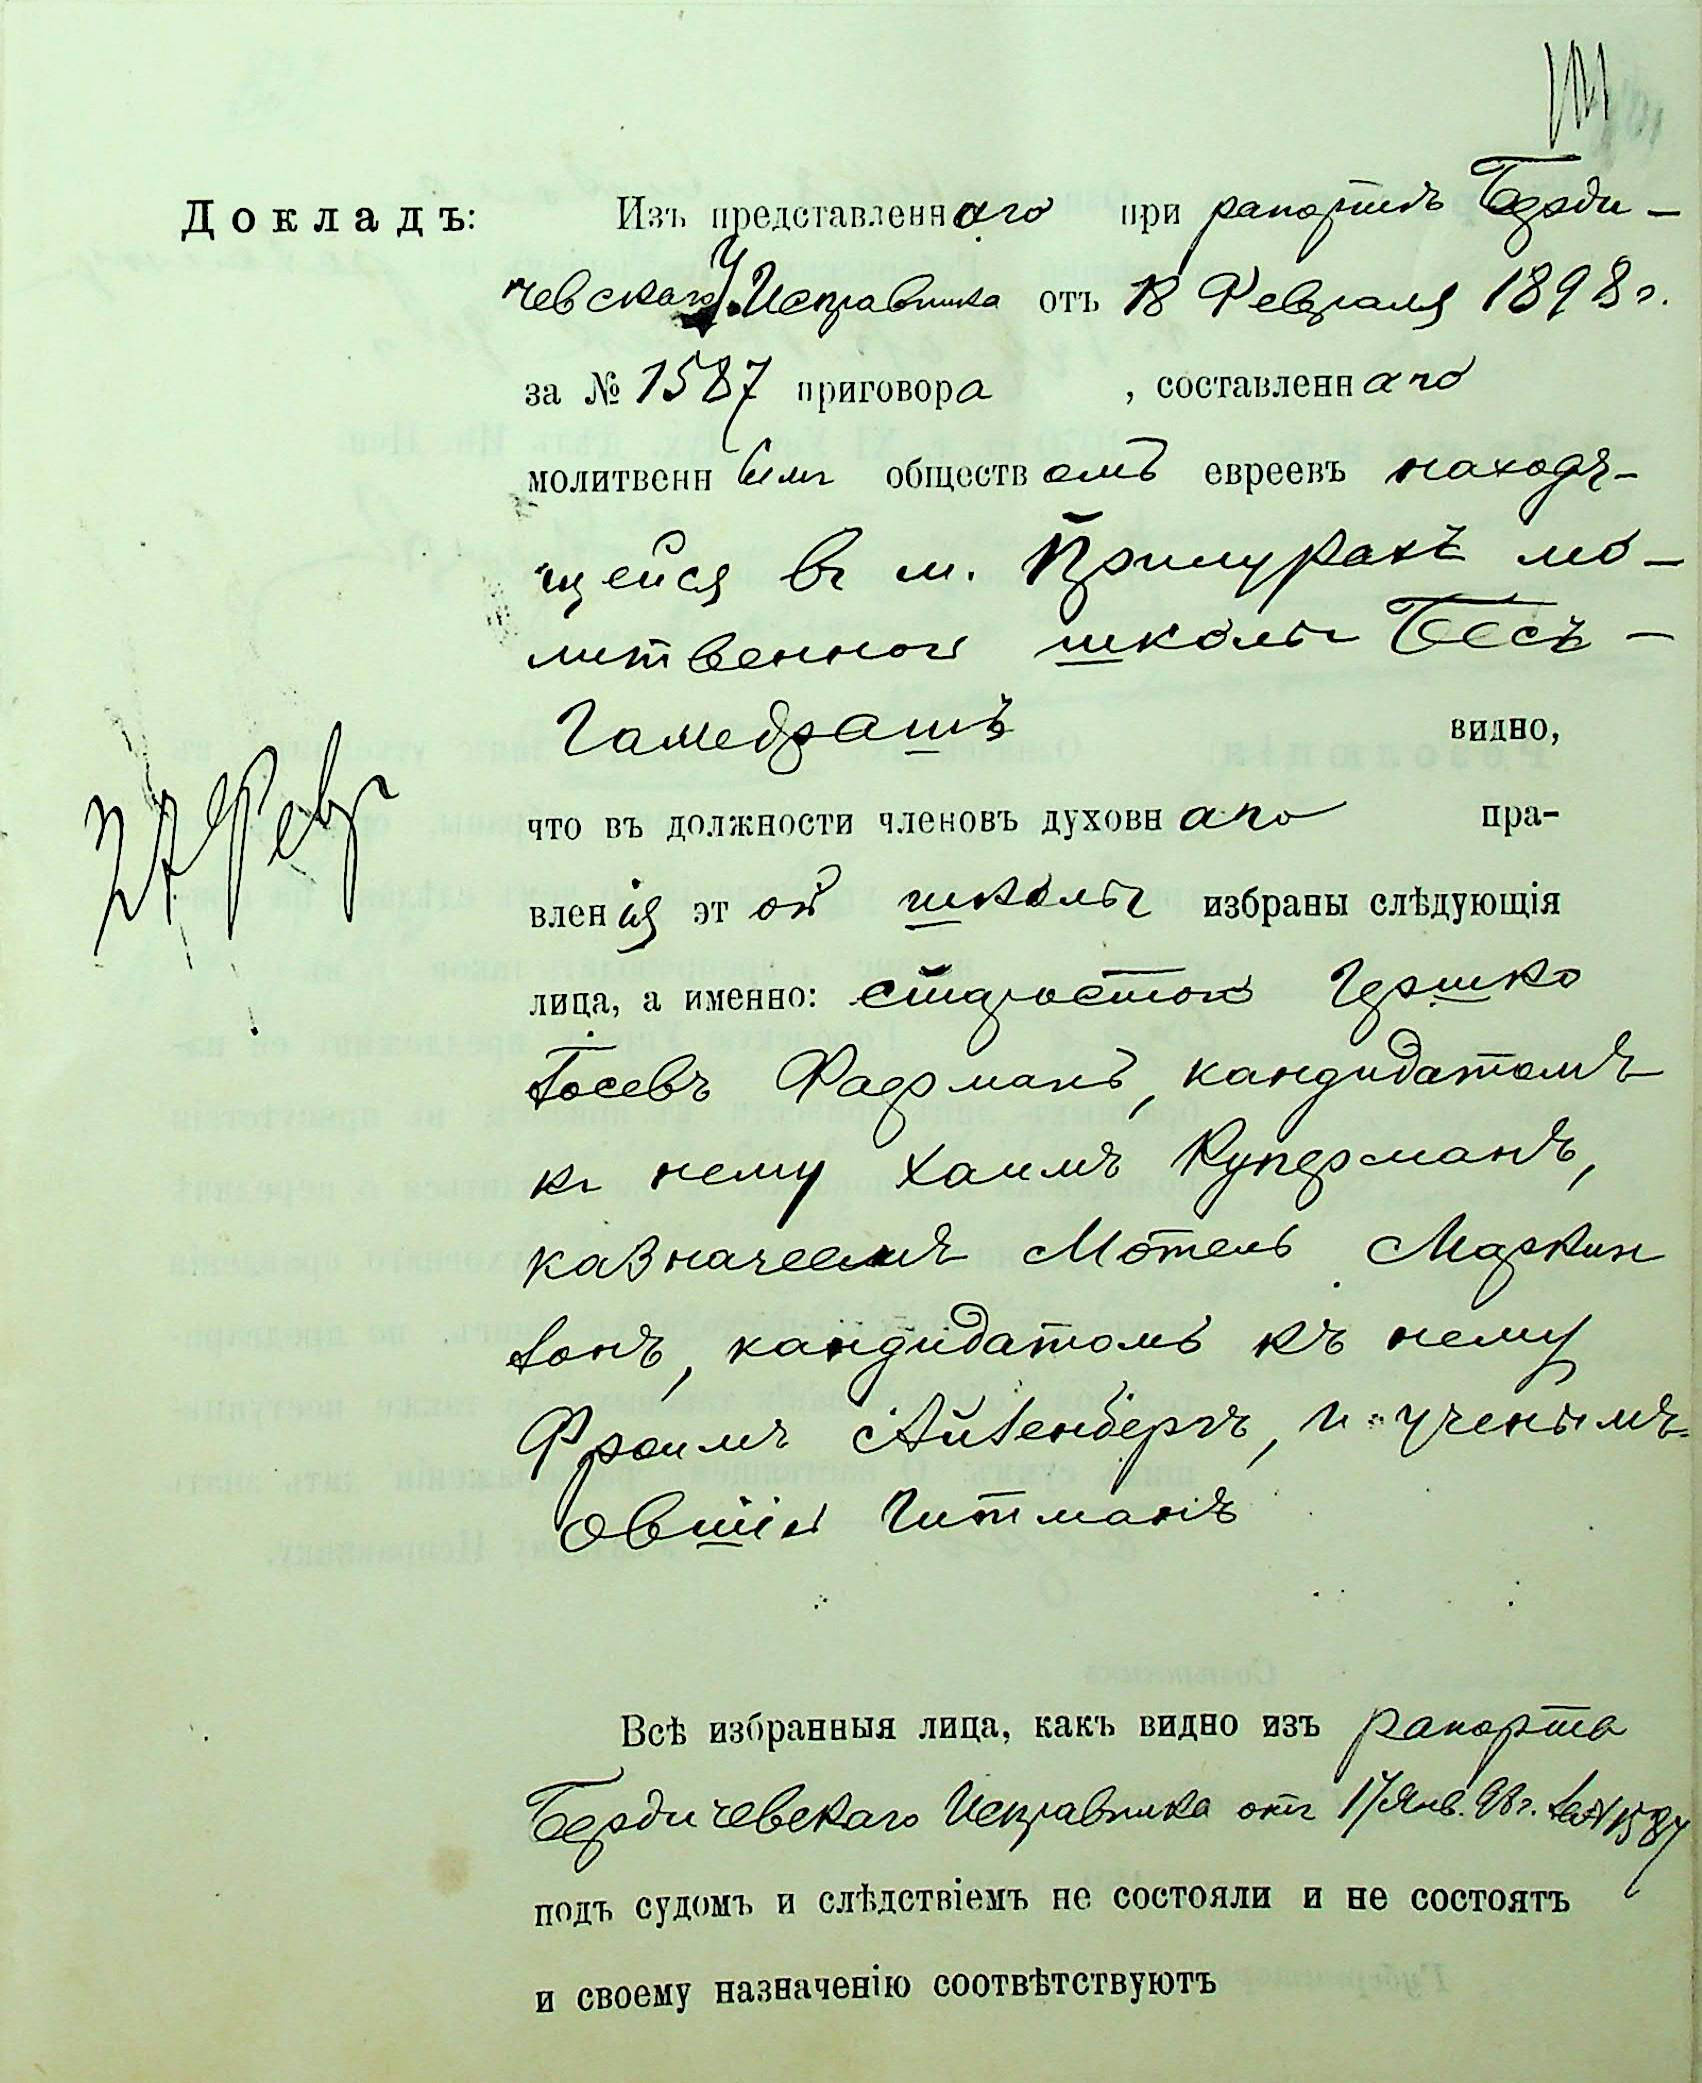 Докладъ: Изъ представленнаго при рапортѣ Берди-
чевскаго У. Исправника отъ 18 Февраля 1898 г.
за № 1587 приговора, составленнаго
молитвеннымъ обществомъ евреевъ находя-
щейся въ м. мо-
литвенной школы Бесъ-
Гамедрашъ видно,
что въ должности членовъ духовнаго пра-
вленія этой школы избраны слѣдующія
лица, а именно: старостою Гершко
Іосевъ Фаерманъ, кандидатомъ
къ нему Хаимъ Куперманъ,
казначеемъ Мотель Маркин
зонъ, кандидатомъ къ нему
Фроимъ Айзенбергъ, и ученымъ
Овшія Гитманъ
27 Февр
Всѣ избранныя лица, какъ видно изъ рапорта
Бердичевскаго Исправника отъ 17 Янв. 98 г. за № 1587
подъ судомъ и слѣдствіемъ не состояли и не состоятъ
и своему назначенію соотвѣтствуютъ